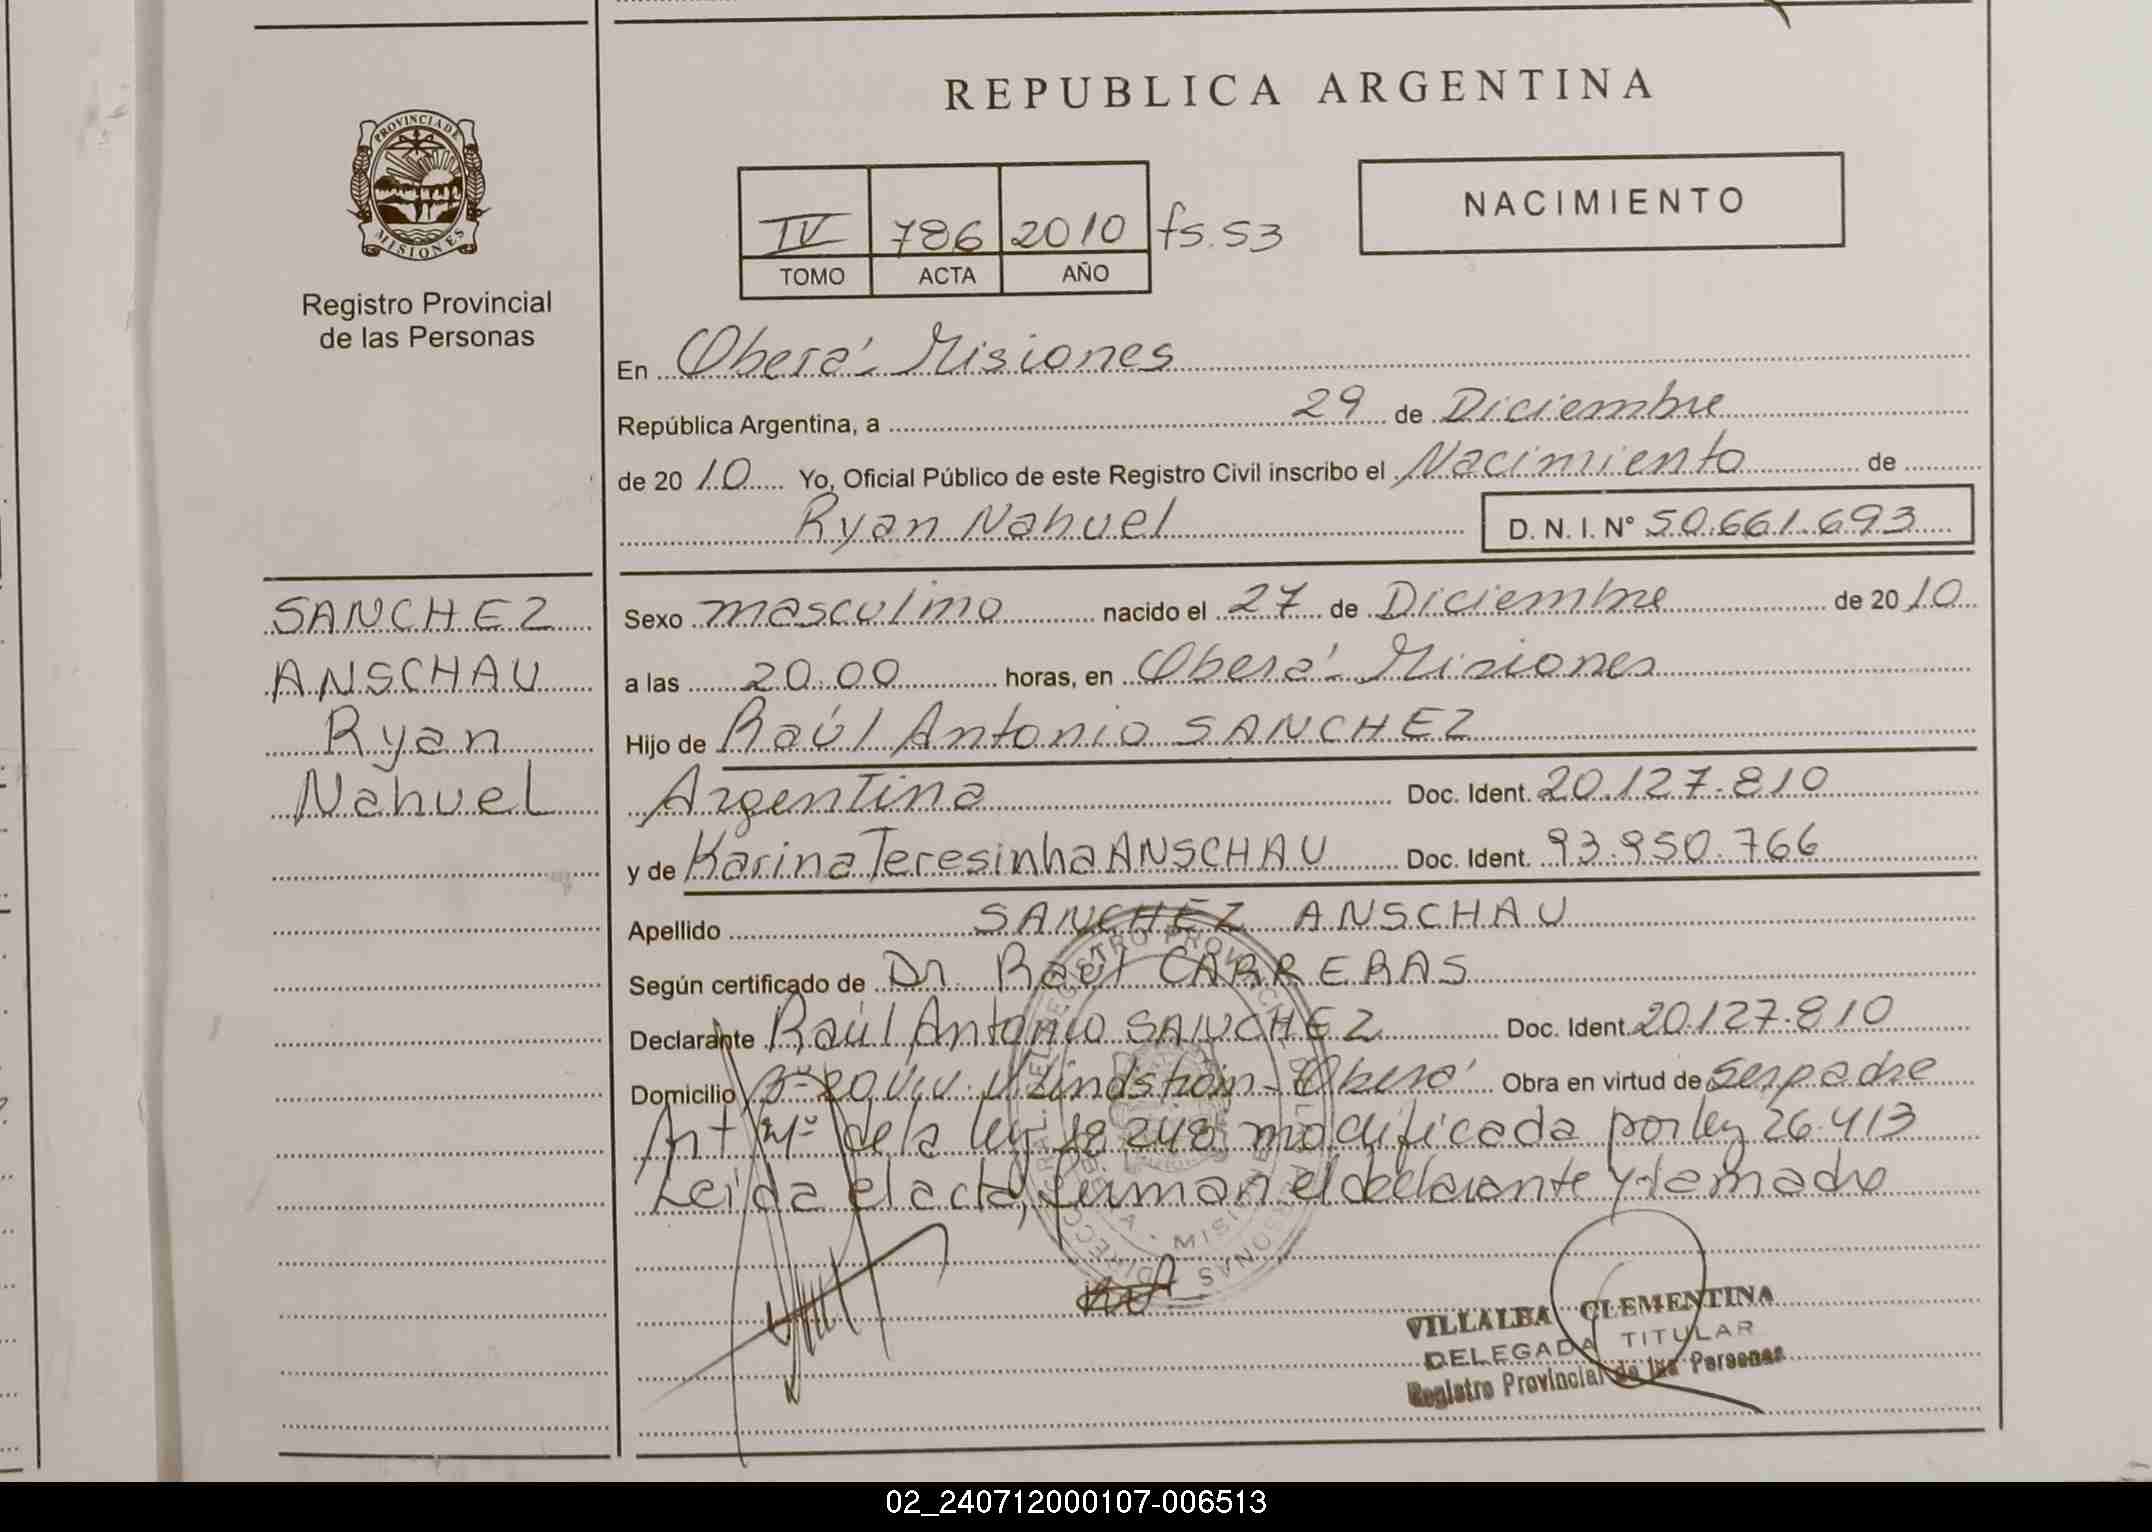 REPUBLICA ARGENTINA
PROVINCIA DE
MISIONES
Registro Provincial
de las Personas
IV 786 2010 fs. 53
TOMO ACTA AÑO
NACIMIENTO
En Oberá Misiones
República Argentina, a 29 de Diciembre
de 20 10 Yo, Oficial Público de este Registro Civil inscribo el Nacimiento de
Ryan Nahuel D. N. I. N° 50.661.693
SANCHEZ
ANSCHAU
Ryan
Nahuel
Sexo masculino nacido el 27 de Diciembre de 20 10
a las 20.00 horas, en Oberá Misiones
Hijo de Raúl Antonio SANCHEZ
Argentina Doc. Ident. 20.127.810
y de Karina Teresinha ANSCHAU Doc. Ident. 93.950.766
Apellido SANCHEZ ANSCHAU
Según certificado de Dr. Raúl CARRERAS
Declarante Raúl Antonio SANCHEZ Doc. Ident. 20.127.810
Domicilio Oberá Obra en virtud de ser padre
Art de la ley 18.248 modificada por ley 26.413
Leída el acta, firman el declarante y la madre
VILLALBA CLEMENTINA
DELEGADA TITULAR
Registro Provincial de las Personas
02_240712000107-006513